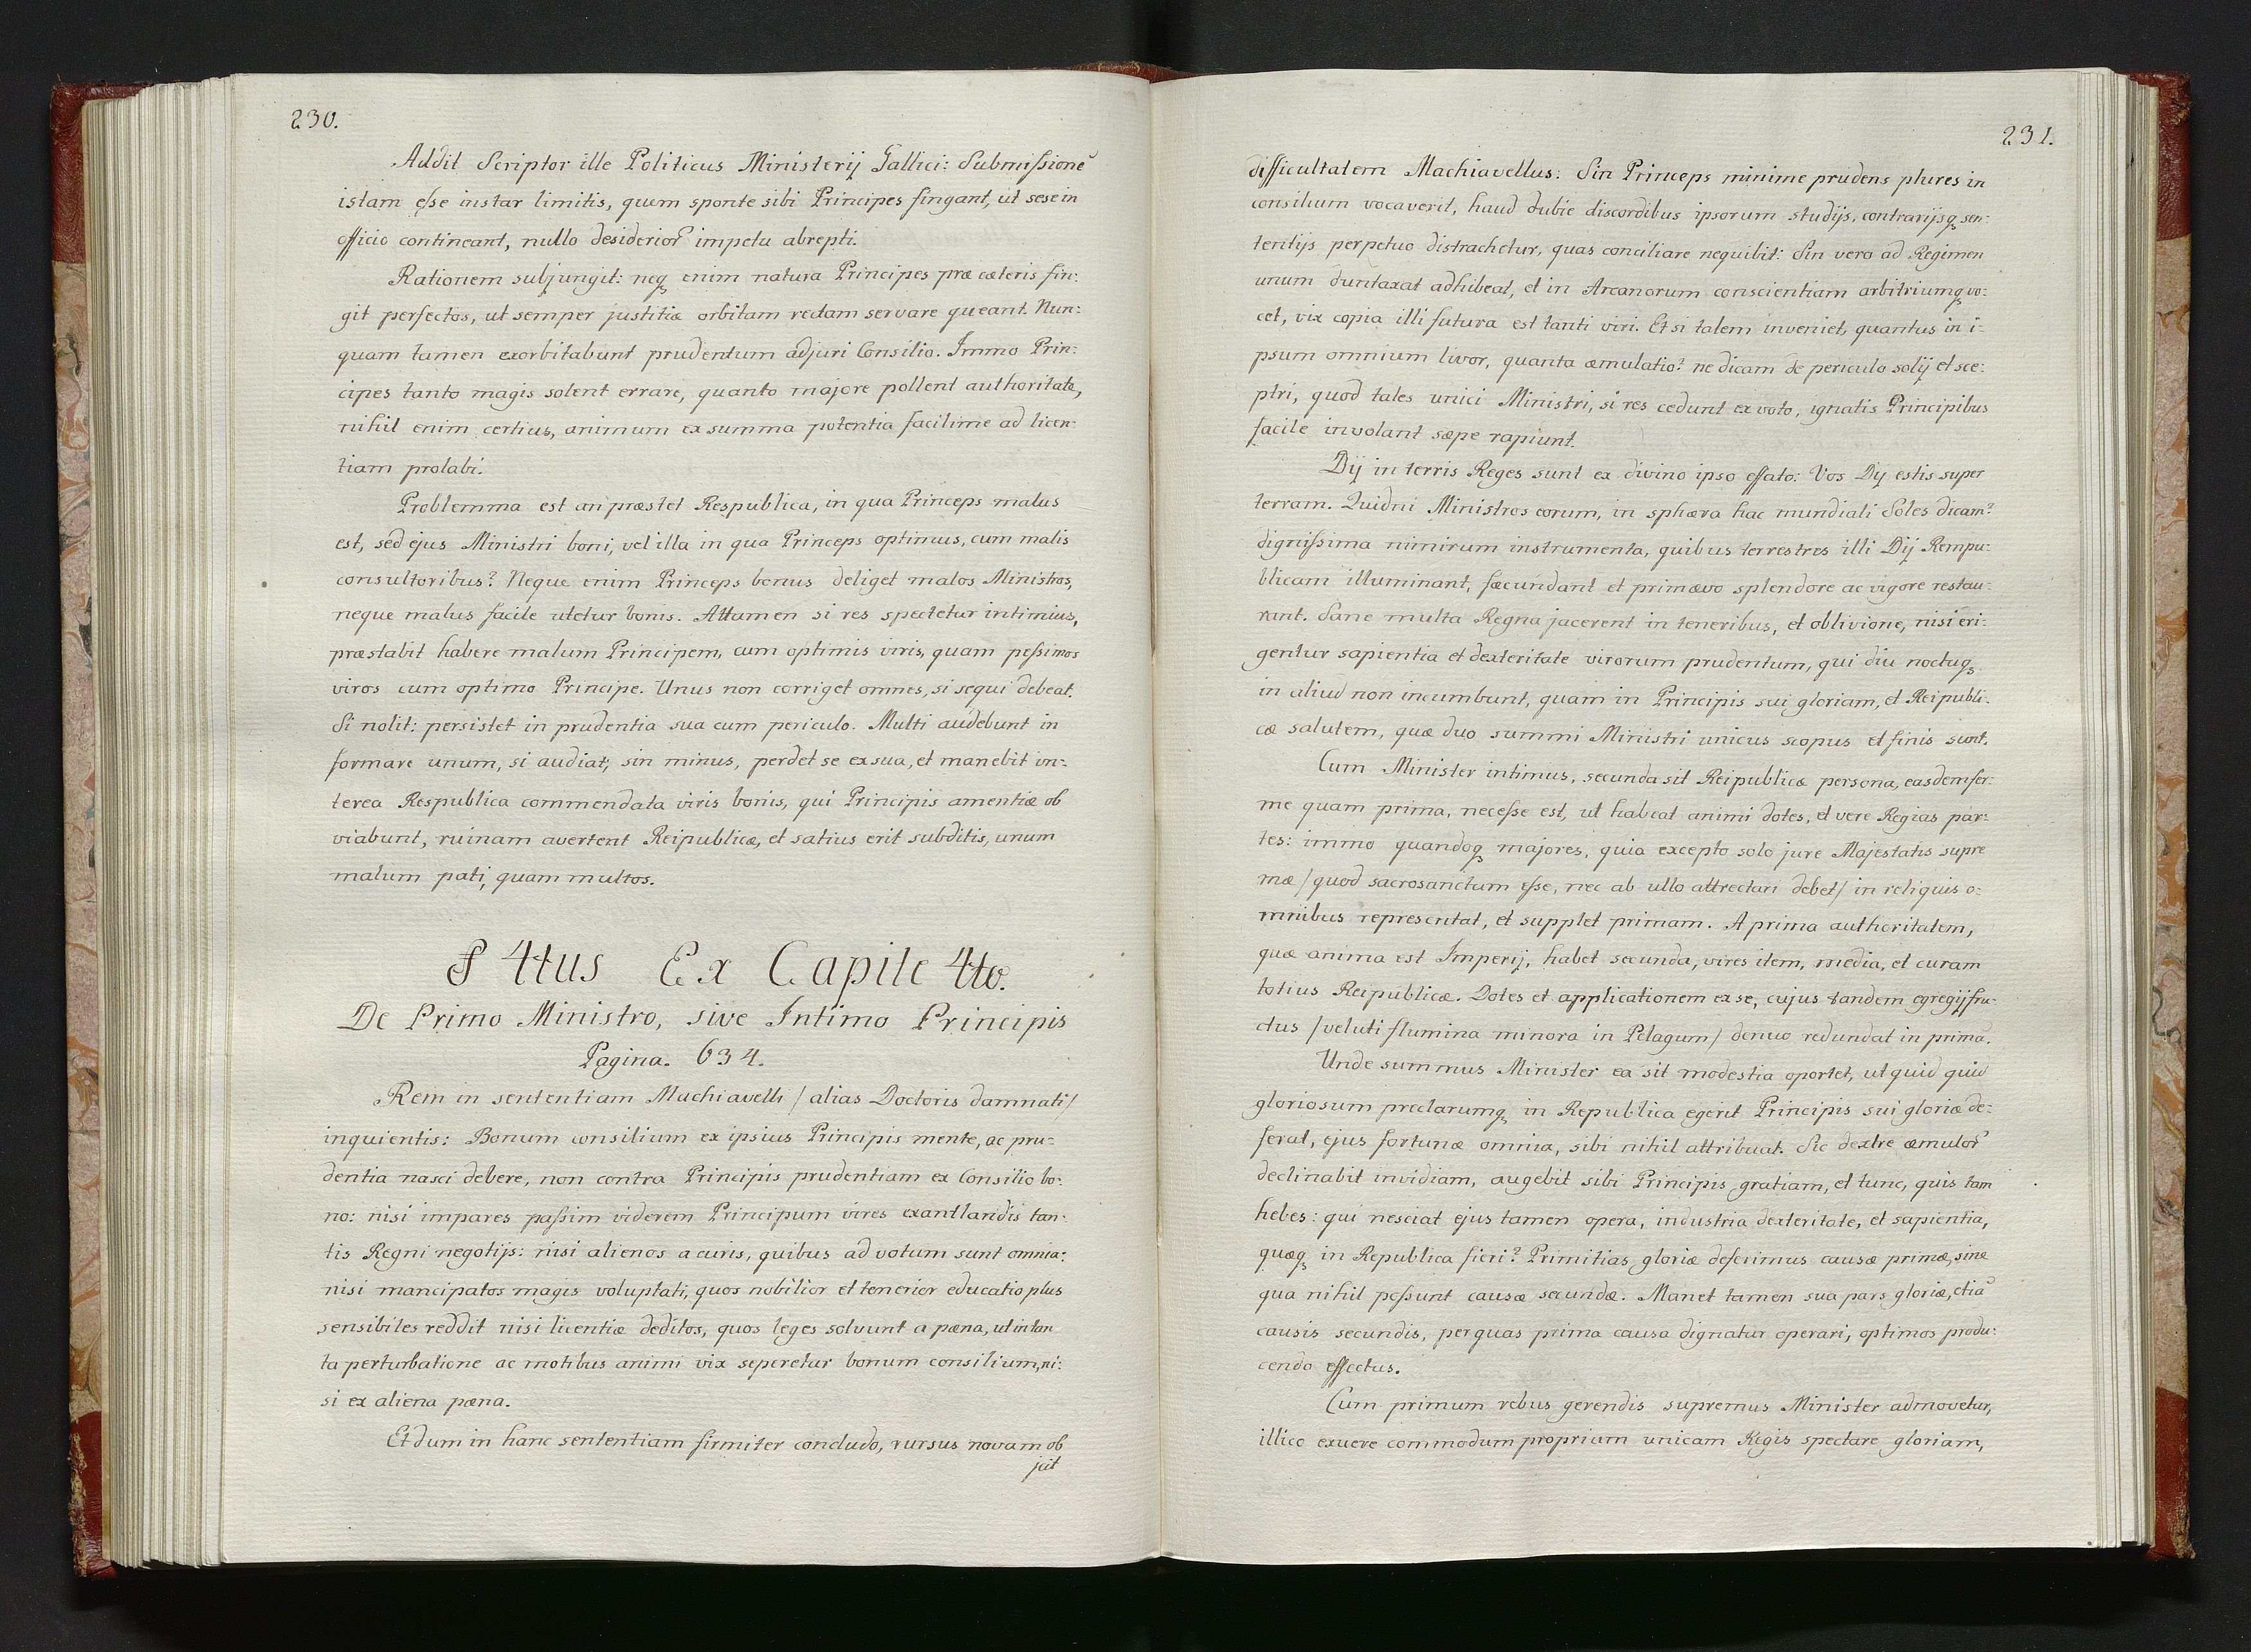 230.
Addit Scriptor ille Politicus Ministerij Gallici: Submissionē
istam esse instar limitis, quem sponte sibi Principes fingant, ut sese in
officio contineant, nullo desiderior̄ impetu abrepti.
Rationem subjungit: neq̢ enim natura Principes præ cæteris fin:
git perfectos, ut semper justitiæ orbitam rectam servare queant. Nun:
quam tamen exorbitabunt prudentum adjuri Consilio. Immo Prin:
cipes tanto magis solent errare, quanto majore pollent authoritate,
nihil enim certius, animum ex summa potentia facilime ad licen:
tiam prolabi.
Problemma est an præstet Respublica, in qua Princeps malus
est, sed ejus Ministri boni, vel illa in qua Princeps optimus, cum malis
consultoribus? Neque enim Princeps bonus deliget malos Ministros,
neque malus facile utetur bonis. Attamen si res spectetur intimius,
præstabit habere malum Principem, cum optimis viris, quam pessimos
viros cum optimo Principe. Unus non corriget omnes, si sequi debeat.
Si nolit: persistet in prudentia sua cum periculo. Multi audebunt in
formare unum, si audiat; sin minus, perdet se ex sua, et manebit in:
terea Respublica commendata viris bonis, qui Principis amentiæ ob
viabunt, ruinam avertent Reipublicæ, et satius erit subditis, unum
malum pati, quam multos.
§ 4tus Ex Capite 4to.
De Primo Ministro, sive Intimo Principis
Pagina. 634.
Rem in sententiam Machiavelli / alias Doctoris damnati /
inquientis: Bonum consilium ex ipsius Principis mente, ac pru:
dentia nasci debere, non contra Principis prudentiam ex Consilio bo:
no: nisi impares passim viderem Principum vires exantlandis tan:
tis Regni negotijs: nisi alienos a curis, quibus ad votum sunt omnia:
nisi mancipatos magis voluptati, quos nobilior et tenerior educatio plus
sensibiles reddit nisi licentiæ deditos, quos leges solvunt a pæna, ut in tan
ta perturbatione ac motibus animi vix seperetur bonum consilium, ni:
si ex aliena pæna.
Et dum in hanc sententiam firmiter concludo, rursus novam ob
jicit
231.
difficultatem Machiavellus: Sin Princeps minime prudens plures in
consilium vocaverit, haud dubie discordibus ipsorum studijs, contrarijsq̢ sen:
tentijs perpetuo distrachetur, quas conciliare nequibit: Sin vero ad Regimen
unum duntaxat adhibeat, et in Arcanorum conscientiam arbitriumq̢ vo:
cet, vix copia illi futura est tanti viri. Et si talem inveniet, quantus in i:
psum omnium livor, quanta æmulatio? ne dicam de periculo solij et sce:
ptri, quod tales unici Ministri, si res cedunt ex voto, ignatis Principibus
facile involant sæpe rapiunt.
Dij in terris Reges sunt ex divino ipso effato: Vos Dij estis super
terram. Quidni Ministros eorum, in sphæra hac mundiali Soles dicam?
dignissima nimirum instrumenta, quibus terrestres illi Dij Rempu:
blicam illuminant, fæcundant et primævo splendore ac vigore restau:
rant. Sane multa Regna jacerent in teneribus, et oblivione, nisi eri:
gentur sapientia et dexteritate virorum prudentum, qui diu noctuq̢
in aliud non incumbunt, quam in Principis sui gloriam, et Reipubli:
cæ salutem, quæ duo summi Ministri unicus scopus et finis sunt.
Cum Minister intimus, secunda sit Reipublicæ persona, easdem fer:
me quam prima, necesse est, ut habeat animi dotes, et vere Regias par:
tes: immo quandoq̢ majores, quia excepto solo jure Majestatis supre
mæ / quod sacrosanctum esse, nec ab ullo attrectari debet / in reliquis o:
mnibus representat, et supplet primam. A prima authoritatem,
quæ anima est Imperij, habet secunda, vires item, media, et curam
totius Reipublicæ. Dotes et applicationem ex se, cujus tandem egregij fru:
ctus / veluti flumina minora in Pelagum / denuo redundat in primā.
Unde summus Minister ea sit modestia oportet, ut quid quid
gloriosum preclarumq̢ in Republica egerit Principis sui gloriæ de:
ferat, ejus fortunæ omnia, sibi nihil attribuat. Sic dextre æmulor̄
declinabit invidiam, augebit sibi Principis gratiam, et tunc, quis tam
hebes: qui nesciat ejus tamen opera, industria dexteritate, et sapientia,
quæq̢ in Republica fieri? Primitias gloriæ deferimus causæ primæ, sine
qua nihil possunt causæ secundæ. Manet tamen sua pars gloriæ, etiā
causis secundis, per quas prima causa dignatur operari, optimos produ:
cendo effectus.
Cum primum rebus gerendis supremus Minister admovetur,
illico exuere commodum proprium unicam Regis spectare gloriam,